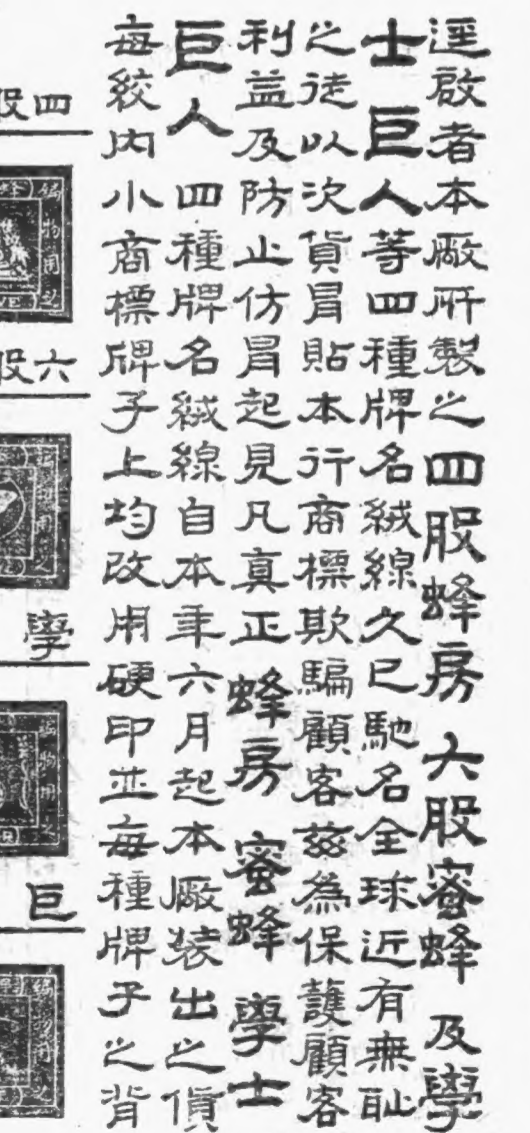 逕啟者本廠所製之四股蜂房 六股蜜蜂 及學
士 巨人等四種牌名絨線久已馳名全球近有無恥
之徒以次貨冒貼本行商標欺騙顧客茲為保護顧客
利益及防止仿冒起見凡真正 蜂房 蜜蜂 學士
巨人 四種牌名絨線自本年六月起本廠裝出之貨
每絞內小商標牌子上均改用硬印並每種牌子之背
四股
編物用之
六股
學
巨